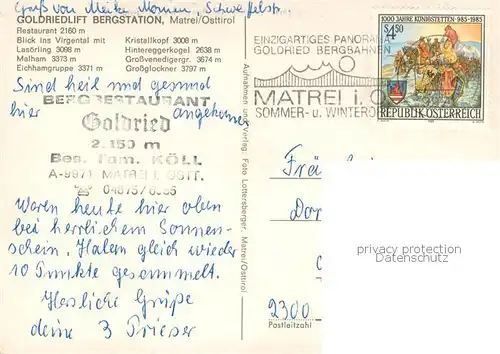 Gruß von Meike
GOLDRIEDLIFT BERGSTATION, Matrei/Osttirol
Restaurant 2160 m
Blick ins Virgental mit Kristallkopf 3008 m
Lasörling 3098 m Hintereggerkogel 2638 m
Malham 3373 m Großvenedigergr. 3674 m
Eichhamgruppe 3371 m Großglockner 3797 m
Sind heil und gesund
hier angekommen
BERGRESTAURANT
Goldried
2.150 m
Bes. Fam. KÖLL
A-9971 MATREI i. OSTT.
☎ 04875/
Waren heute hier oben
bei herrlichem Sonnen-
schein. Haben gleich wieder
10 Punkte gesammelt.
Herzliche Grüße
deine 3 Prieser
Aufnahme und Verlag: Foto Lottersberger, Matrei/Osttirol
EINZIGARTIGES PANORAMA
GOLDRIED BERGBAHNEN
MATREI i. O
SOMMER- u. WINTEROR
1000 JAHRE KÜHNSTETTEN 985-1985
S 4.50
REPUBLIK ÖSTERREICH
Frä
Dor
2300
Postleitzahl
privacy protection
Datenschutz